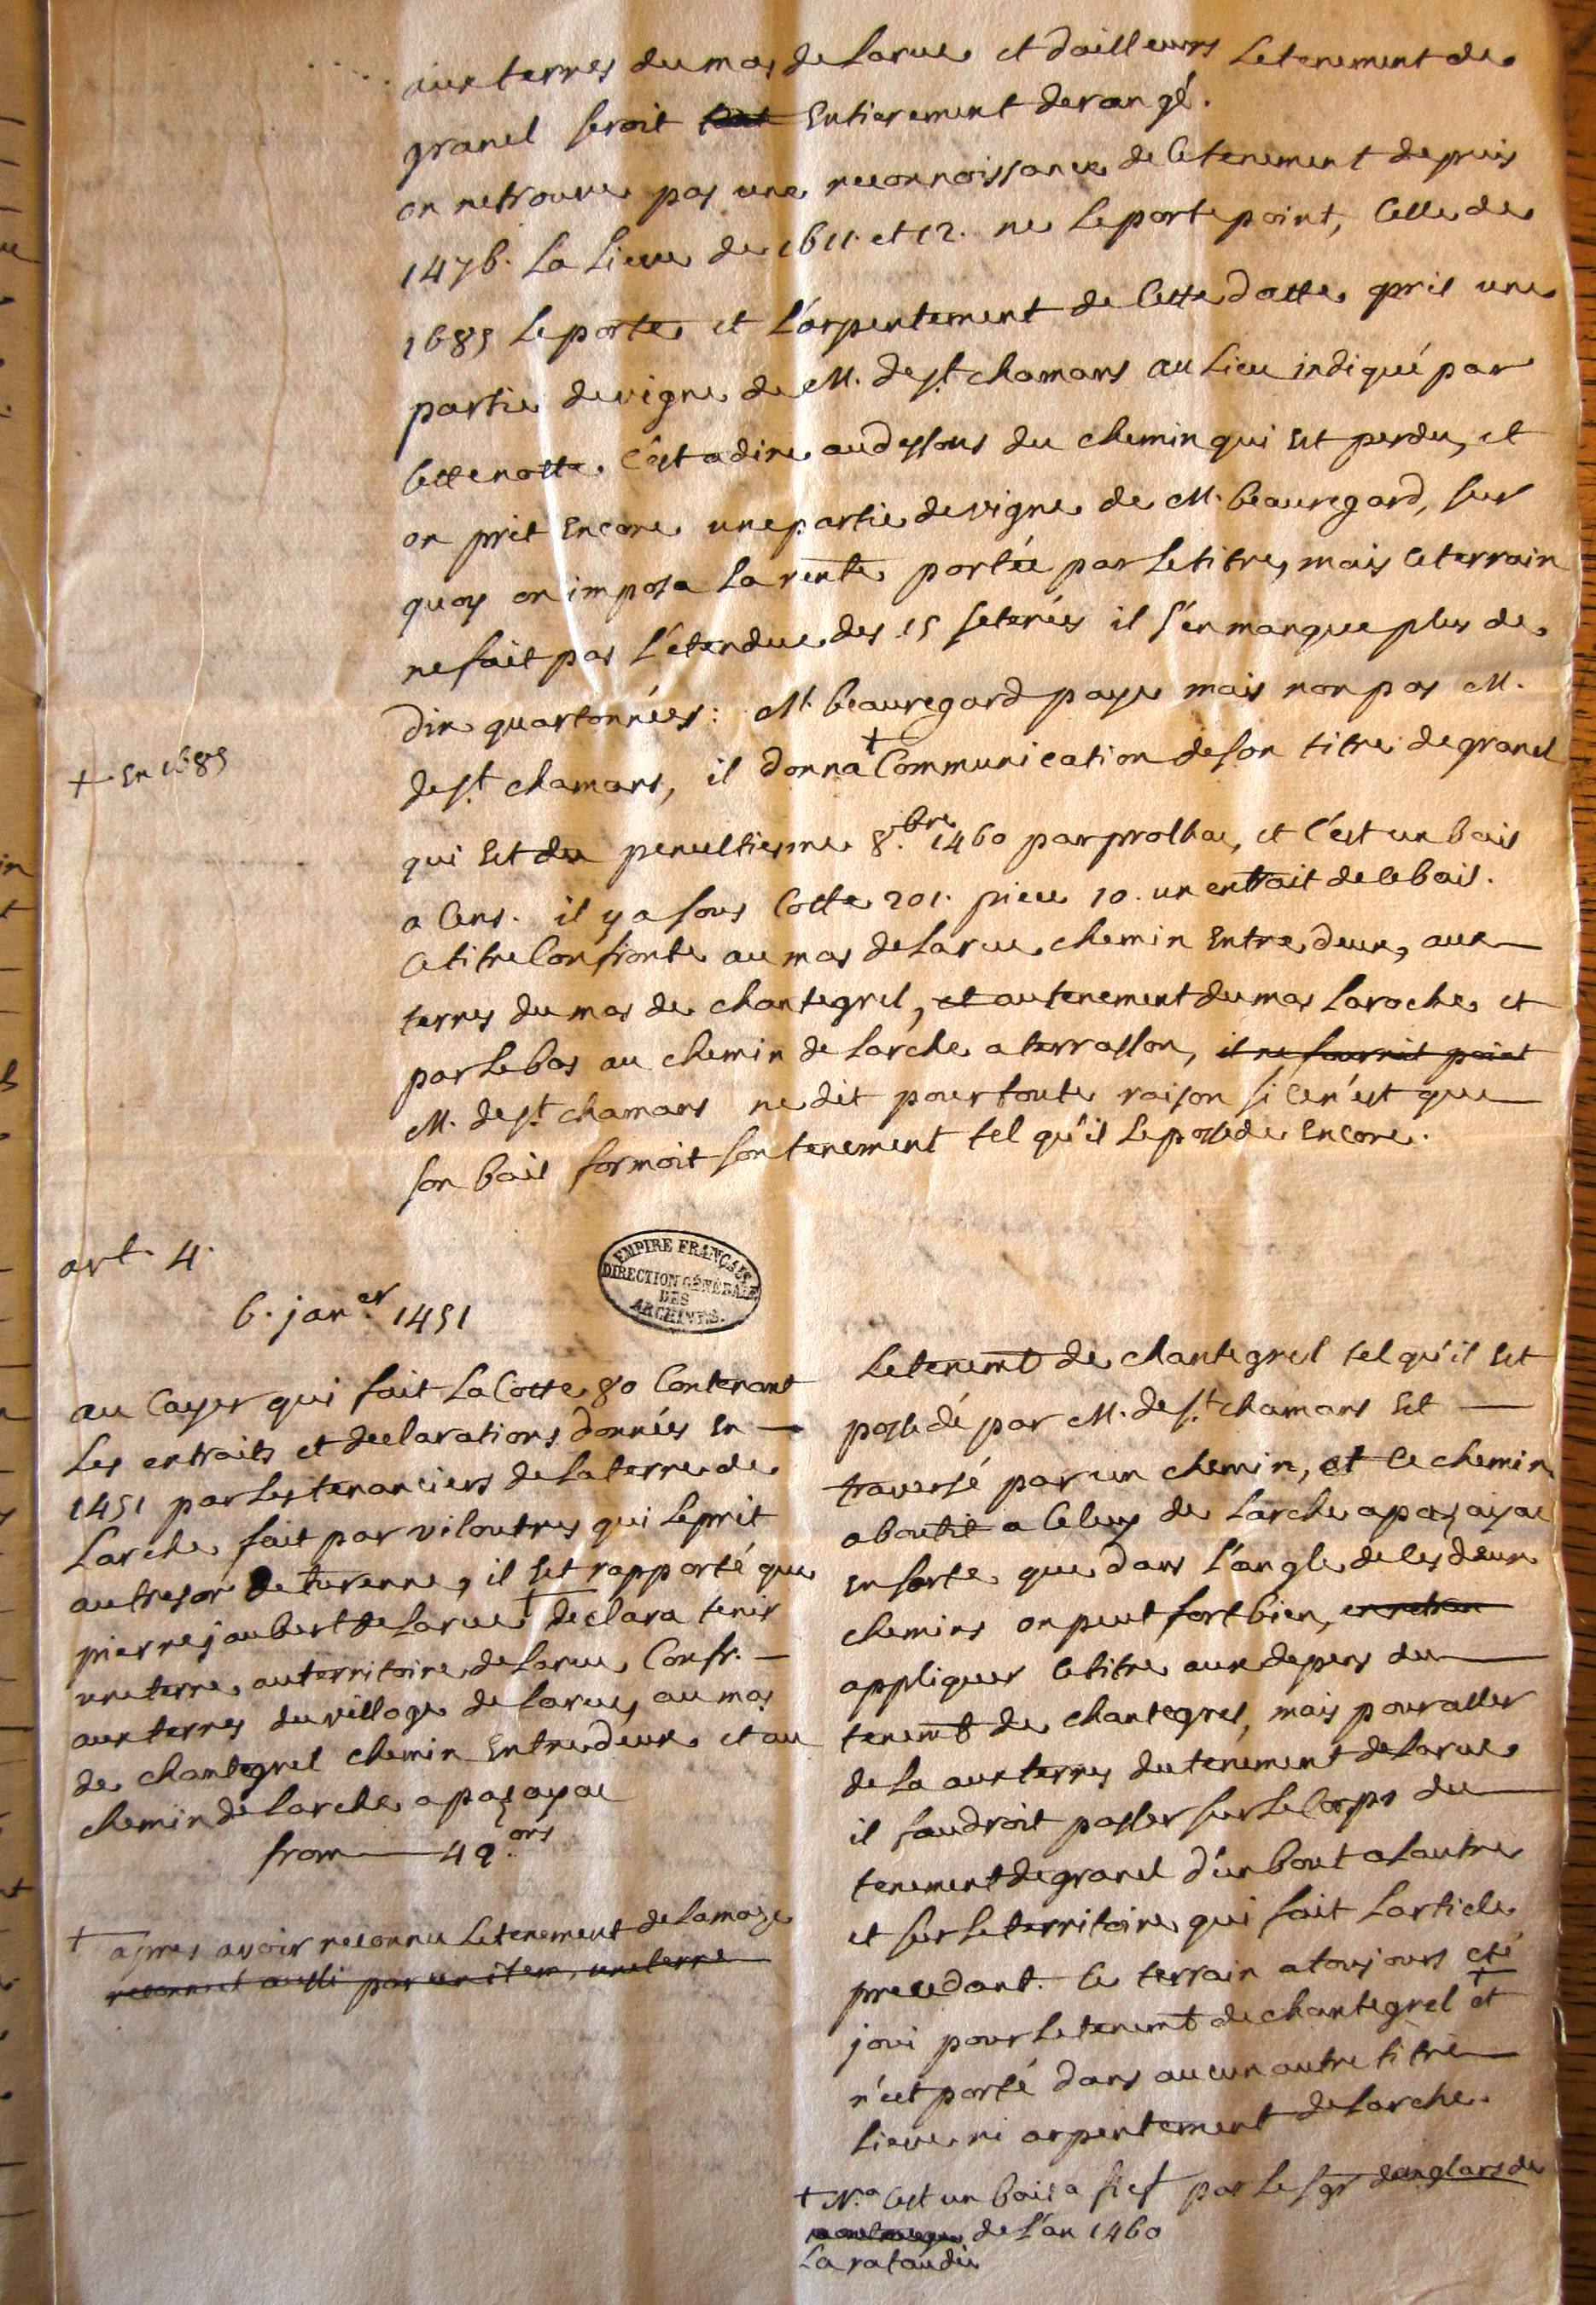 aux terres du mas de Larue et dailleurs Le tenement de
granel seroit tout Entierement derangé.
on ne trouve pas une reconnoissance de Ce tenement depuis
1476. La Lieve de 1611. et 12. ne Le porte point, Celle de
1685 Le porte et L'arpentement de Cette datte prit une
partie de vigne de M. de st chamans au Lieu indiqué par
Cette notte C'est a dire au dessous du chemin qui Est perdu, et
on prit Encore une partie de vigne de M. beauregard, sur
quoy on imposa La rente portée par Le titre, mais Ce terrain
ne fait pas L'etendue des 15 seterées il s'en manque plus de
dix quartonnées: Mr beauregard paye mais non pas M.
de st chamans, il donna + Communication de son titre de granel
+ En 1685
qui Est du penultiesme 8.bre 1460 par prolhac, et C'est un bail
a Cens. il y a sous Cotte 201. piece 10. un extrait de Ce bail.
Ce titre Confronte au mas de Larue, chemin Entre deux, aux
terres du mas de chantegrel, et au tenement du mas Laroche et
par Le bas au chemin de Larche a terrasson, il ne fournit point
M. de st chamans ne dit pour toute raison si Ce n'est que
son bail formoit son tenement tel qu'il Le possede Encore.
art. 4.
EMPIRE FRANÇAIS
DIRECTION GÉNÉRALE
DES
ARCHIVES.
6. jan.er 1451
au Cayer qui fait La Cotte 80 Contenant
Les extraits et declarations données En
1451 par Les tenanciers de La terre de
Larche fait par viloutreys qui Le prit
au tresor de turenne, il Est rapporté que
pierre jaubert de Larue + declara tenir
une terre au territoire de Larue Confr.
aux terres du village de Larue, au mas
de chantegrel chemin Entre deux et au
chemin de Larche a pazayac
from 4 q.ons
+ apres avoir reconnu Le tenement de Lamaze
reconnoit aussi par un item, une terre
Le tenemt de chantegrel tel qu'il Est
possedé par M. de st chamans Est
traversé par un chemin, et Ce chemin
aboutit a Celuy de Larche a pazayac
En sorte que dans L'angle de Ces deux
chemins on peut fort bien,
appliquer Ce titre aux depens du
tenemt de chantegrel, mais pour aller
de La aux terres du tenement de Larue
il faudroit passer sur Le Corps du
tenement de granel d'un bout a Lautre
et sur Le territoire qui fait Larticle
precedant. Ce terrain a toujours eté
joui pour Le tenemt de chantegrel + et
n'est porté dans aucun autre titre
Lieve ni arpentement de Larche.
+ N.a C'est un bail a fief par Le sgr danglars de
de L'an 1460
La rataudie